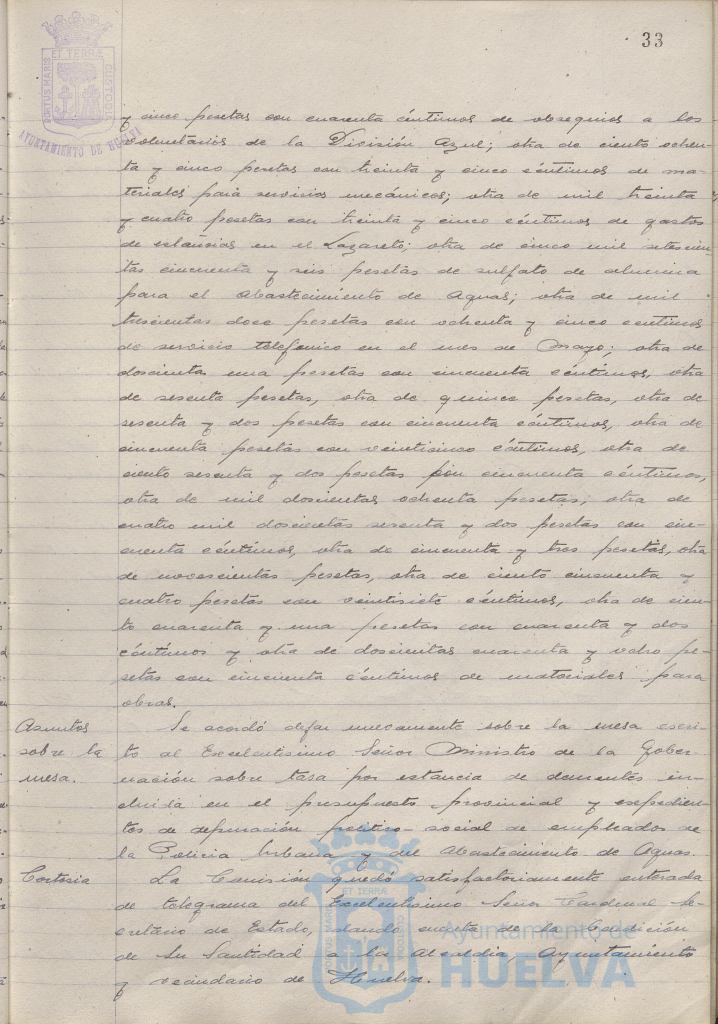 33
PORTUS MARIS ET TERRÆ CUSTODIA
AYUNTAMIENTO DE HUELVA
y cinco pesetas con cuarenta céntimos de obsequios a los
voluntarios de la División Azul; otra de ciento ochen-
ta y cinco pesetas con treinta y cinco céntimos de ma-
teriales para servicios mecánicos; otra de mil treinta
y cuatro pesetas con treinta y cinco céntimos de gastos
de estancias en el Lazareto; otra de cinco mil setescien-
tas cincuenta y seis pesetas de sulfato de alumina
para el Abastecimiento de Aguas; otra de mil
trescientas doce pesetas con ochenta y cinco céntimos
de servicio telefonico en el mes de Mayo; otra de
doscientas una pesetas con cincuenta céntimos, otra
de sesenta pesetas, otra de quince pesetas, otra de
sesenta y dos pesetas con cincuenta céntimos, otra de
cincuenta pesetas con veinticinco céntimos, otra de
ciento sesenta y dos pesetas con cincuenta céntimos,
otra de mil doscientas ochenta pesetas; otra de
cuatro mil doscientas sesenta y dos pesetas con cin-
cuenta céntimos, otra de cincuenta y tres pesetas, otra
de novescientas pesetas, otra de ciento cincuenta y
cuatro pesetas con veintisiete céntimos, otra de cien-
to cuarenta y una pesetas con cuarenta y dos
céntimos y otra de doscientas cuarenta y ocho pe-
setas con cincuenta céntimos de materiales para
obras.
Asuntos sobre la mesa.
Se acordó dejar nuevamente sobre la mesa escri-
to al Excelentisimo Señor Ministro de la Gober-
nación sobre tasa por estancia de dementes in-
cluida en el presupuesto provincial y expedien-
tes de depuración politico-social de empleados de
la Policia Urbana y del Abastecimiento de Aguas.
Cortesia
La Comisión quedó satisfactoriamente enterada
de telegrama del Excelentisimo Señor Cardenal Se-
cretario de Estado, dando cuenta de la Bendición
de Su Santidad a la Alcaldia, Ayuntamiento
y vecindario de Huelva.
Ayuntamiento de
HUELVA